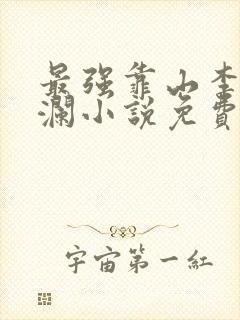 最强靠山李
澜小說免費
宇宙第一紅